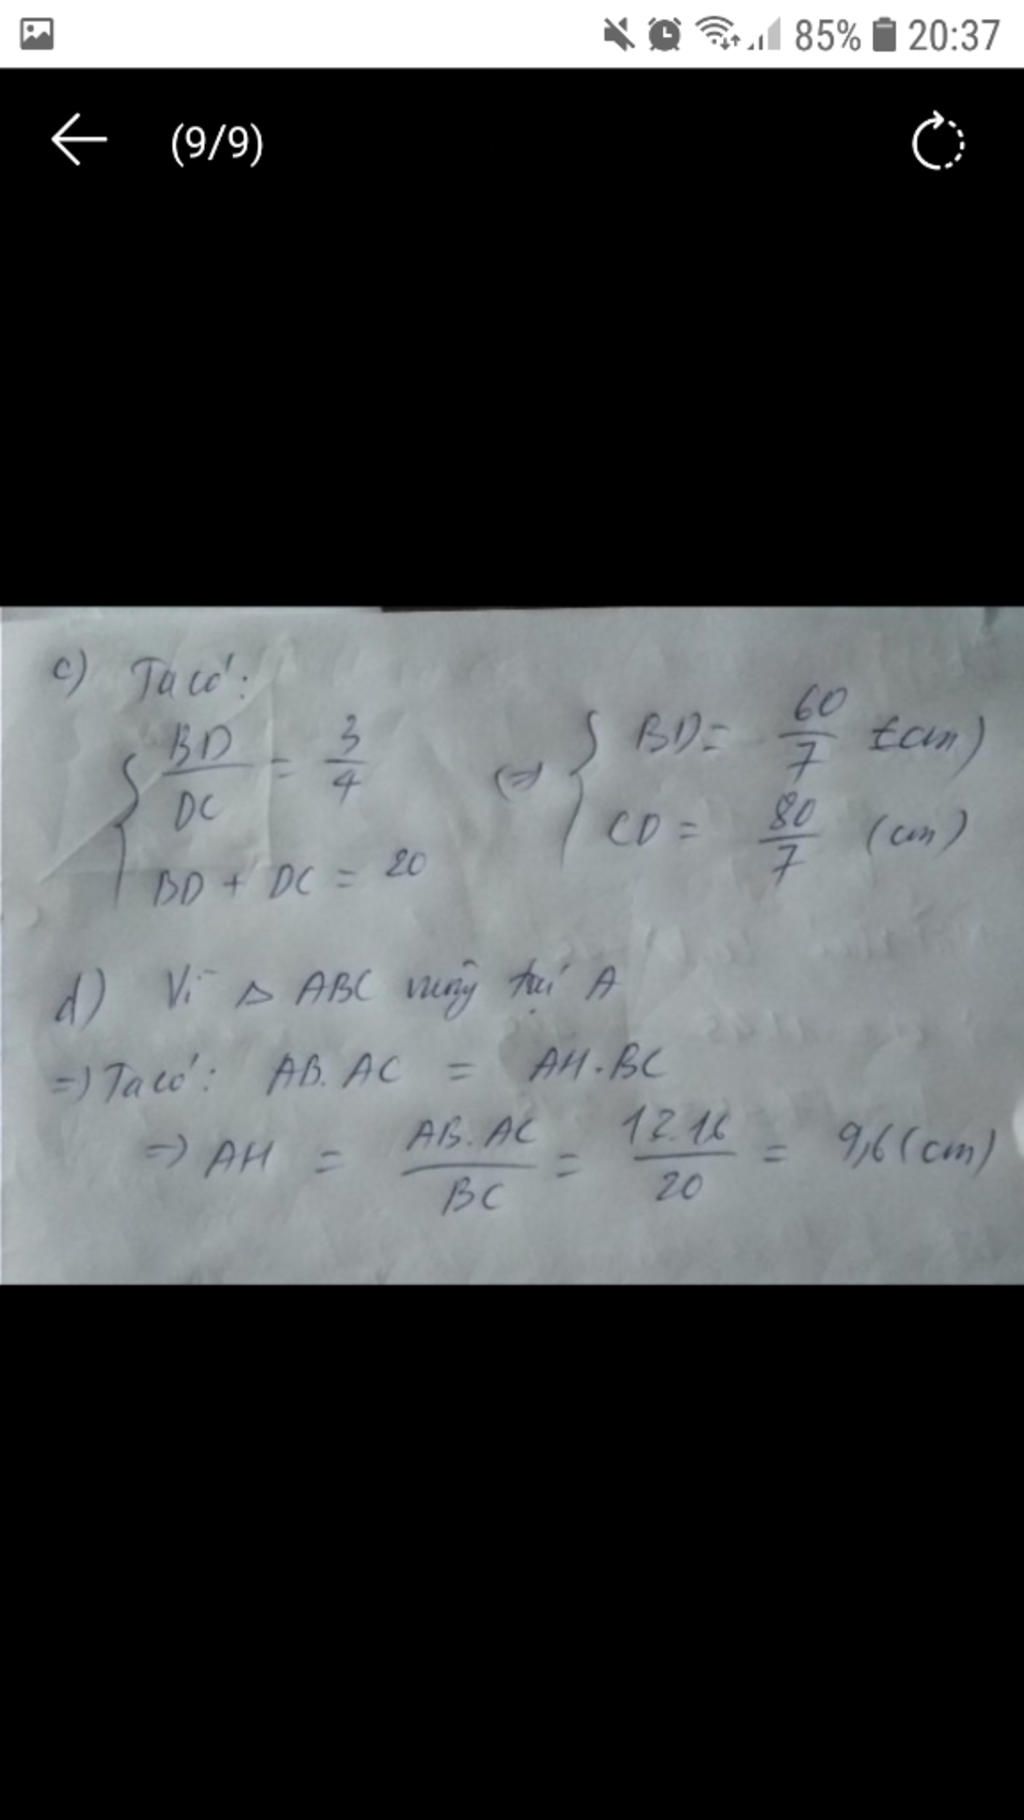 85% 20:37
(9/9)
c) Ta có:
BD/DC = 3/4 (=) BD = 60/7 (cm)
BD + DC = 20 CD = 80/7 (cm)
d) Vì △ ABC vuông tại A
=) Ta có: AB.AC = AH.BC
=) AH = AB.AC/BC = 12.16/20 = 9,6 (cm)